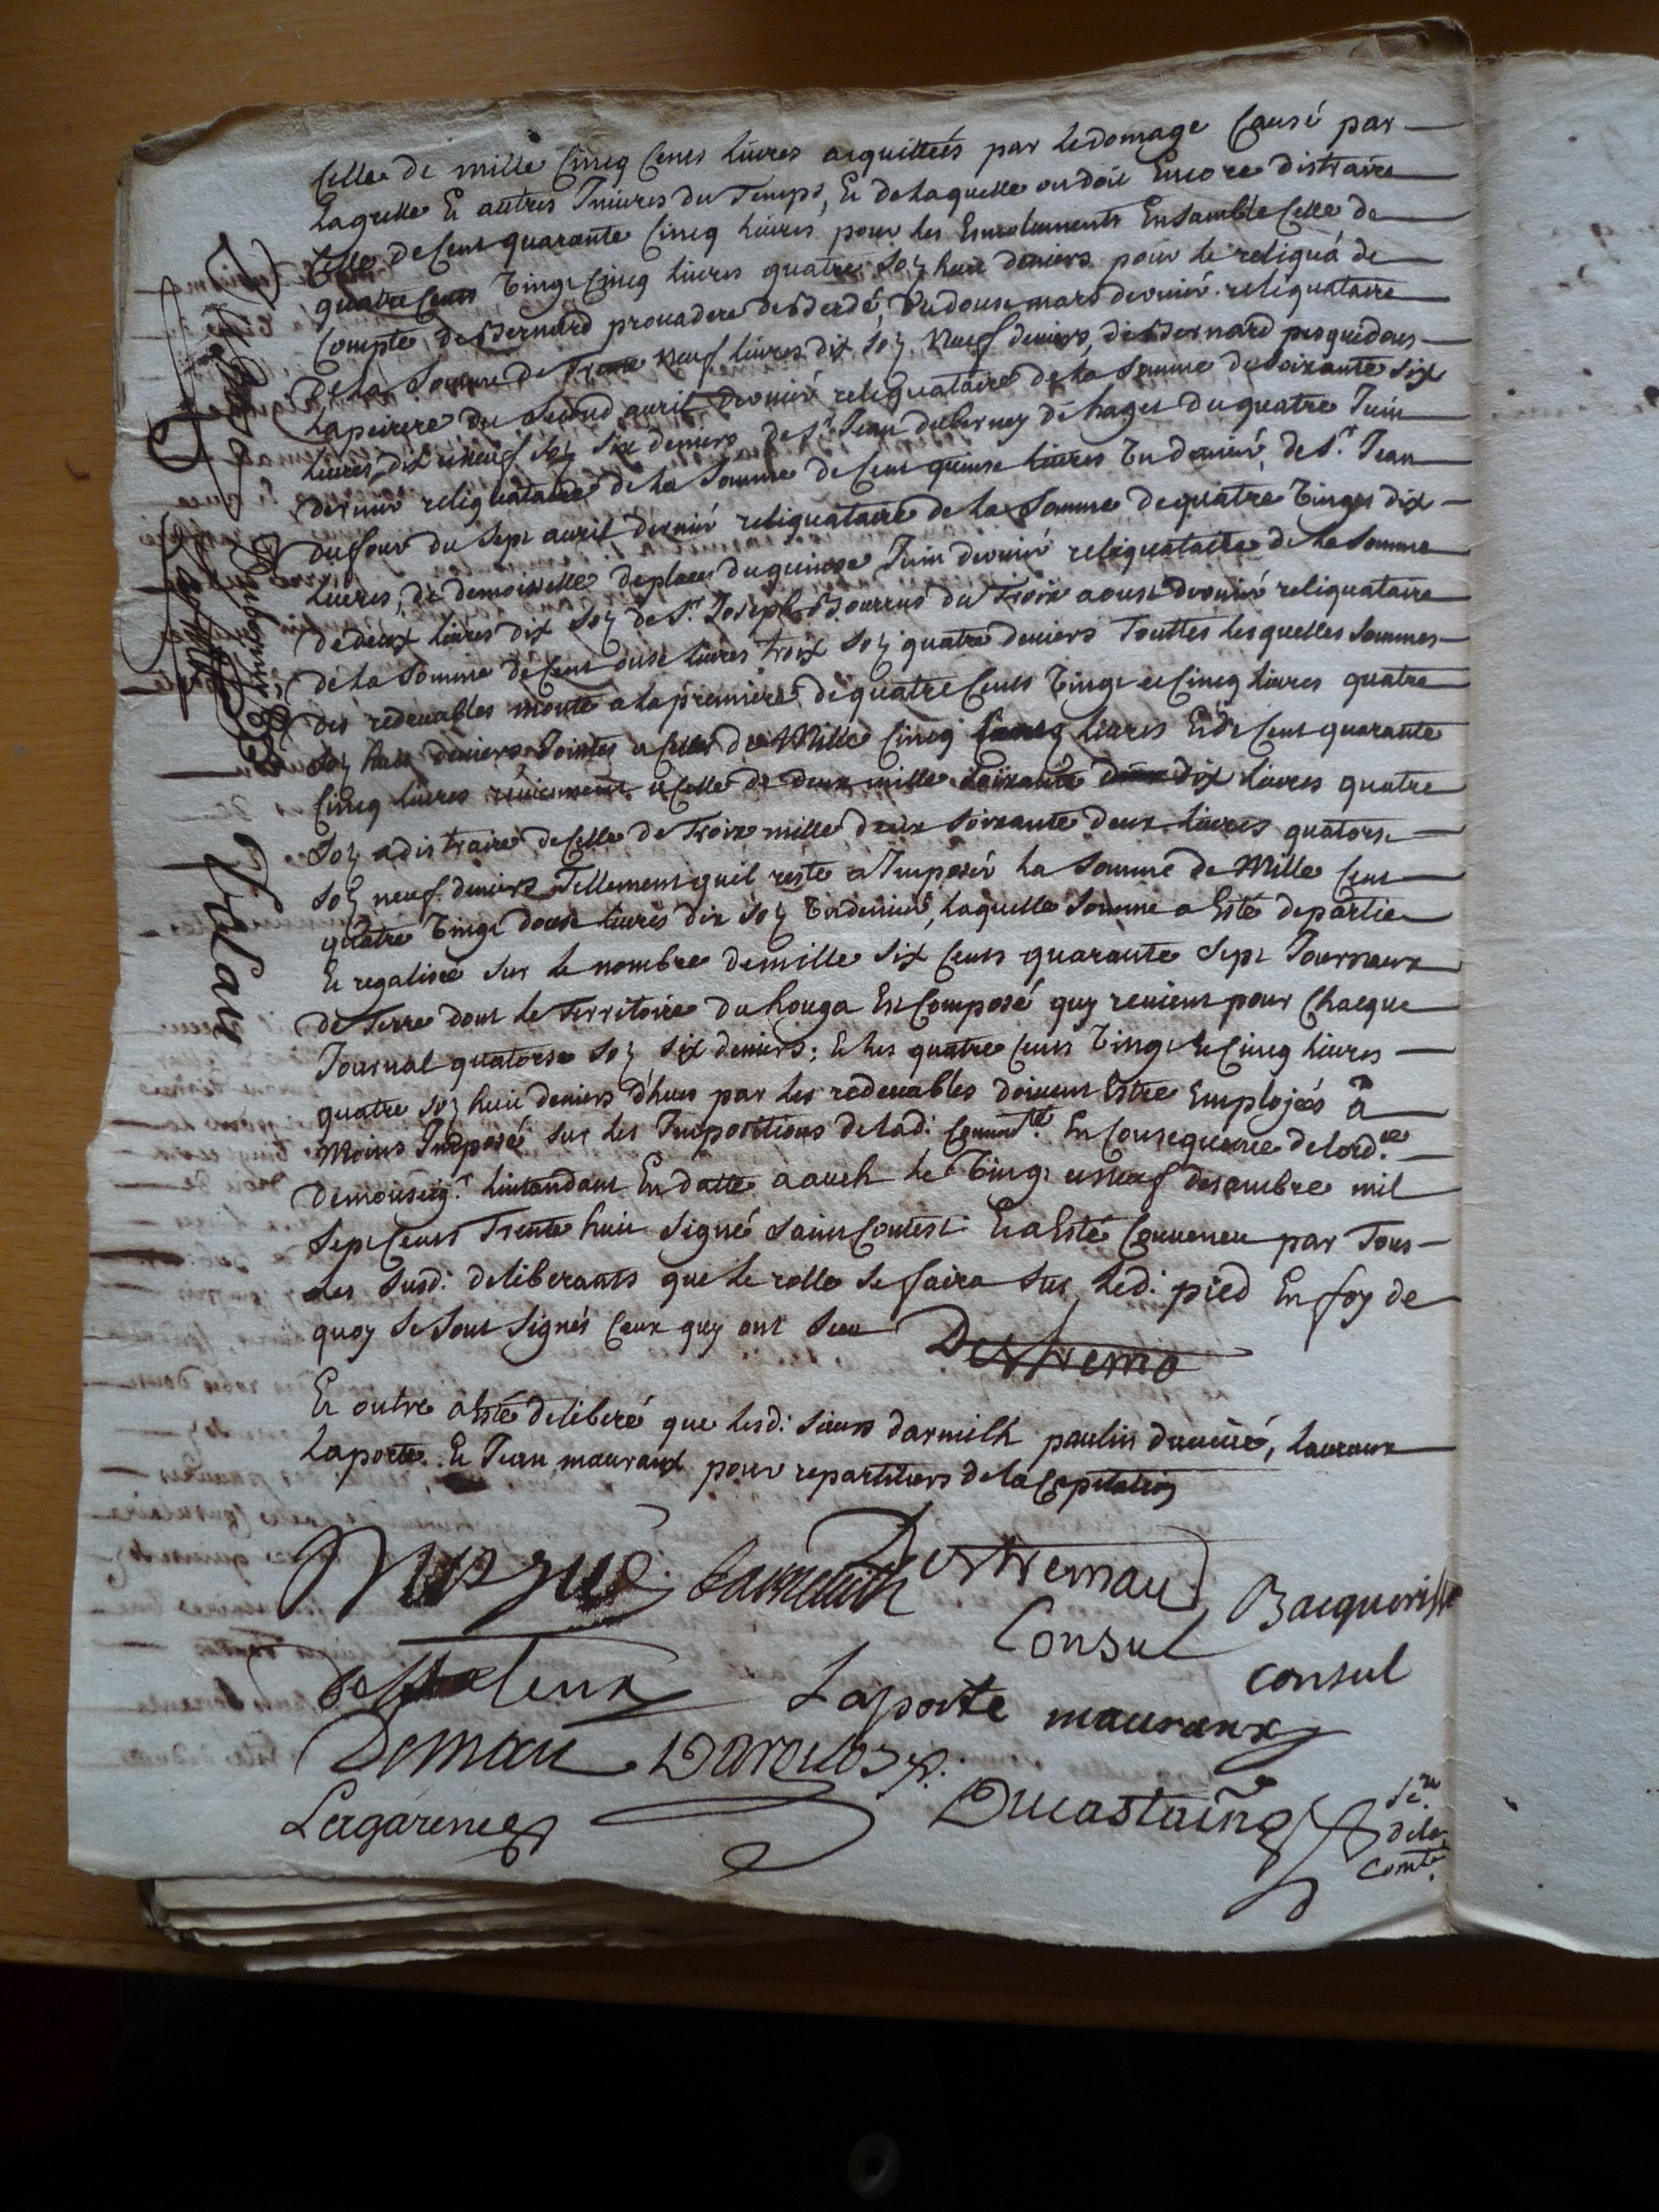 Celle de mille Cincq Cens livres acquittées par le domage Causé par
La grelle Et autres Iniures du Temps, Et de laquelle on doit Encore distraire
Celle de Cent quarante Cincq livres pour les Emoluments Ensamble Celle de
quatre Cens vingt Cincq livres quatre sol huit deniers pour le reliqua de
Compte de Bernard prouadere de Perdé, du douse mars dernier reliquataire
de la somme de Trente neuf livres dix sol neuf deniers, de Bernard pesquidous
Lapeirere du second auril dernier reliquataire de la somme de soixante six
livres dix neuf sol six deniers de Sr Jean duberney de haget du quatre Juin
dernier reliquataire de la somme de Cent quinse livres un denier, de Sr. Jean
dufour du sept auril dernier reliquataire de la somme de quatre vingts dix
livres, de demoiselle deplaces du quinse Juin dernier reliquataire de la somme
de deux livres dix sol de Sr. Joseph Bourrus du Troix aoust dernier reliquataire
de la somme de Cent onse livres troix sol quatre deniers Touttes lesquelles sommes
des redeuables monte a la premiere de quatre Cents vingt et Cincq livres quatre
sol huit deniers Jointes a Celles de Mille Cincq livres Et de Cent quarante
Cincq livres reuiennent a Celle de deux mille soixante dix livres quatre
sol a distraire de Celle de Troix mille deux soixante deux livres quatorse
sol neuf deniers Tellement quil reste a Imposér la somme de Mille Cent
quatre vingt douse livres dix sol un denier, laquelle somme a Esté departie
Et regalisée sur le nombre de mille six Cents quarante sept Journaux
de Terre dont le Territoire du houga Est Composé quy reuient pour Chaque
Journal quatorse sol six deniers; Et les quatre Cents vingt Et Cincq livres
quatre sol huit deniers d'heus par les redeuables doiuent Estre Employés a
Moins Imposé sur les Impositions de lad. Commté. En Consequence de lord.ce
de monseigr. lintandant En datte a auch le vingt et neuf desambre mil
sept Cents Trente huit signé saint Contest Et a Esté Conuenu par Tous
les susd. deliberants que le rolle se faira sur led. pied En foy de
quoy se sont signés Ceux quy ont sceu
Et outre a Esté deliberé que lesd. sieurs darmilh paulin laureux
Laporte Et Jean mauraux pour repartiteurs de la Capitation
Destremau
Consul
Bacquerisse
consul
Laporte mauraux
Deman
Lagarene
Ducastaing
de la
Comté.
Vidau